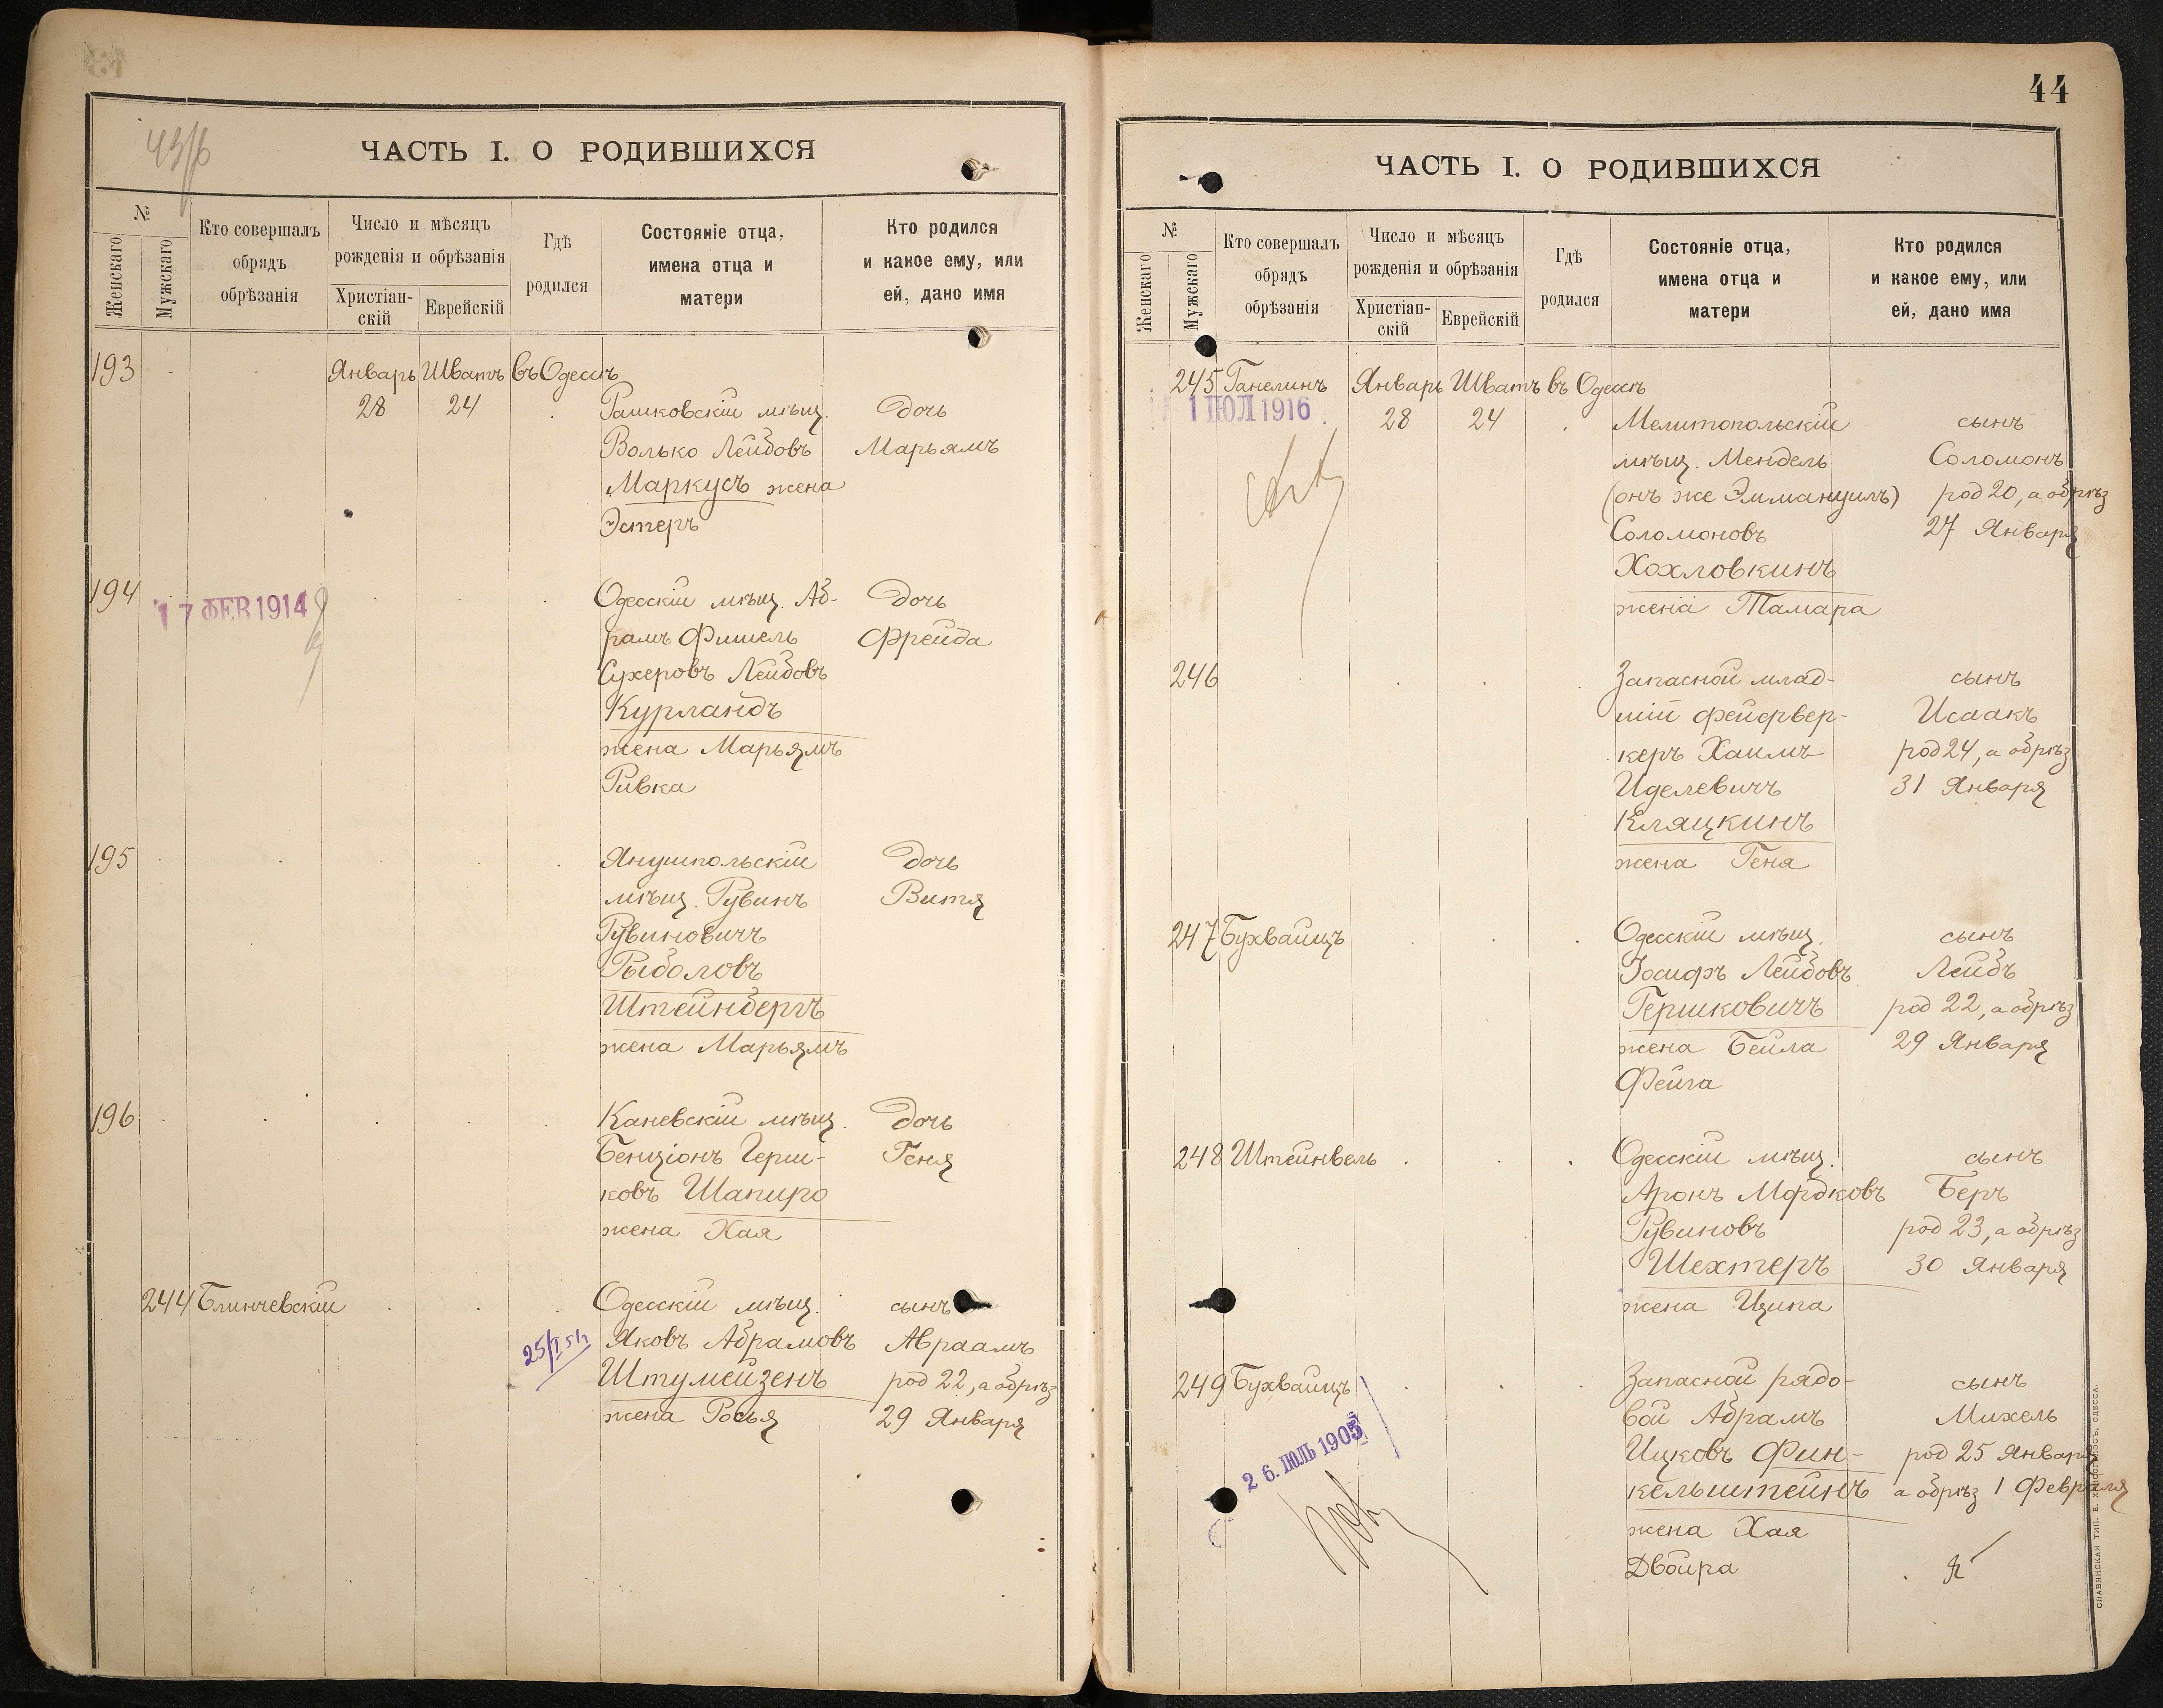 43/б
ЧАСТЬ I. О РОДИВШИХСЯ
№
Женскаго
Мужскаго
Кто совершалъ
обрядъ
обрѣзанія
Число и мѣсяцъ
рожденія и обрѣзанія
Христіан-
скій
Еврейскій
Гдѣ
родился
Состояніе отца,
имена отца и
матери
Кто родился
и какое ему, или
ей, дано имя
193 Январь Шватъ въ Одессѣ
28 24 Рашковскій мѣщ. дочь
Волько Лейбовъ Марьямъ
Маркусъ жена
Эстеръ
194 Одесскій мѣщ. Аб- дочь
17 ФЕВ 1914
рамъ Фишель Фрейда
Сухеровъ Лейбовъ
Курландъ
жена Марьямъ
Ривка
195 Янушпольскій дочь
мѣщ. Рувинъ Витя
Рувиновичъ
Рыболовъ
Штейнбергъ
жена Марьямъ
196 Каневскій мѣщ. дочь
Бенціонъ Герш- Геня
ковъ Шапиро
жена Хая
244 Блинчевскій Одесскій мѣщ. сынъ
Яковъ Абрамовъ Авраамъ
Штумейзенъ род 22, а обрѣз
жена Росья 29 Января
44
ЧАСТЬ I. О РОДИВШИХСЯ
№
Женскаго
Мужскаго
Кто совершалъ
обрядъ
обрѣзанія
Число и мѣсяцъ
рожденія и обрѣзанія
Христіан-
скій
Еврейскій
Гдѣ
родился
Состояніе отца,
имена отца и
матери
Кто родился
и какое ему, или
ей, дано имя
245 Ганелинъ Январь Шватъ въ Одессѣ
1 ІЮЛ 1916 28 24 Мелитопольскій сынъ
мѣщ. Мендель Соломонъ
(онъ же Эммануилъ) род 20, а обрѣз
Соломоновъ 27 Января
Хохловкинъ
жена Тамара
246 Запасной млад- сынъ
шій фейервер- Исаакъ
керъ Хаимъ род 24, а обрѣз
Иделевичъ 31 Января
Кляцкинъ
жена Геня
247 Бухвайцъ Одесскій мѣщ. сынъ
Іосифъ Лейбовъ Лейбъ
Гершковичъ род 22, а обрѣз
жена Бейла 29 Января
Фейга
248 Штейнвель Одесскій мѣщ. сынъ
Аронъ Мордковъ Беръ
Рувиновъ род 23, а обрѣз
Шехтеръ 30 Января
жена Ципа
249 Бухвайцъ Запасной рядо- сынъ
вой Абрамъ Михель
26. ІЮЛЬ 1905
Ицковъ Фин- род 25 Января
кельштейнъ а обрѣз 1 Февраля
жена Хая
Двойра
СЛАВЯНСКАЯ ТИП. Е. ХРИСОГЕЛОСЪ, ОДЕССА.